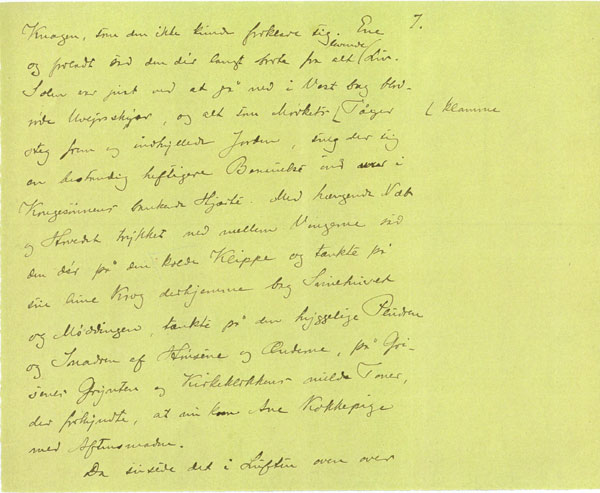 7.
Knugen, som den ikke kunde forklare sig. Ene
og forladt sad den dér langt borte fra alt levende Liv.
Solen var just ved at gå ned i Vest bag blod-
røde Uvejrsskyer, og alt som Mørkets klamme Tåger
steg frem og indhyllede Jorden, sneg der sig
en bestandig heftigere ind i
Kongesønnens bankende Hjærte. Med hængende Næb
og Hovedet trykket ned mellem Vingerne sad
den dér på den kolde Klippe og tænkte på
sin lune Krog derhjemme bag Svinehuset
og Møddingen, tænkte på den hyggelige Pludren
og Snadren af Hønsene og Ænderne, på Gri-
senes Grynten og Kirkeklokkens milde Toner,
der forkyndte, at nu kom Ane Kokkepige
med Aftensmaden.
Da susede det i Luften oven over